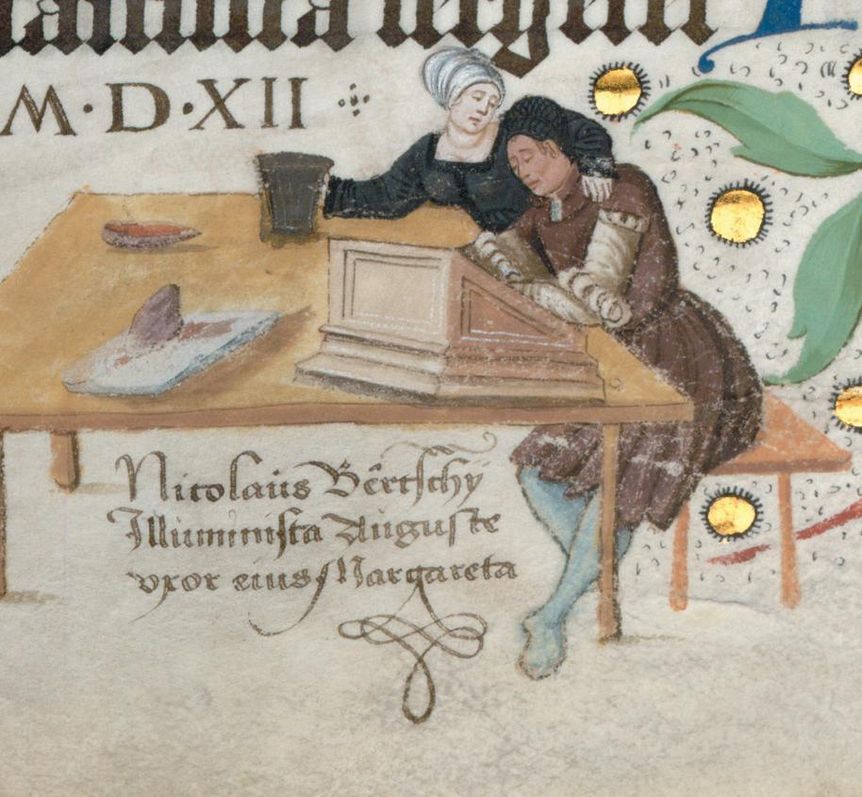 M·D·XII
Nicolaüs Bêrtschÿ
Illuminista Auguste
vxor eius Margareta